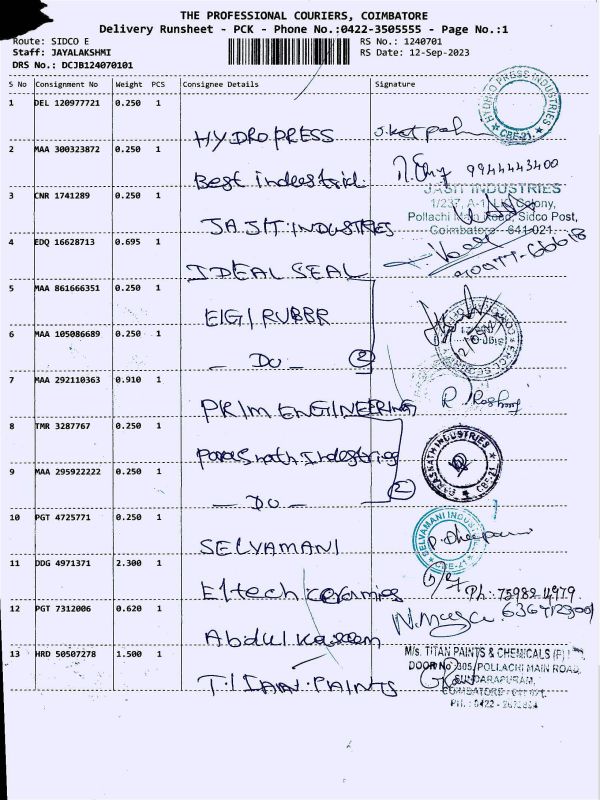 THE PROFESSIONAL COURIERS, COIMBATORE
Delivery Runsheet - PCK - Phone No.:0422-3505555 - Page No.:1
Route: SIDCO E
Staff: JAYALAKSHMI
DRS No.: DCJB124070101
RS No.: 1240701
RS Date: 12-Sep-2023
S No Consignment No Weight PCS Consignee Details Signature
1 DEL 120977721 0.250 1
HYDROPRESS
HYDRO PRESS INDUSTRIES CBE-21
2 MAA 300323872 0.250 1
Best industrial 9944443400
3 CNR 1741289 0.250 1
JAJIT INDUSTRIES
JASIT INDUSTRIES
1/237, A-1, Colony,
Pollachi Main Road, Sidco Post,
Coimbatore 641 021.
4 EDQ 16628713 0.695 1
IDEAL SEAL
5 MAA 861666351 0.250 1
ElGI RUBBR
6 MAA 105086689 0.250 1
- DO - 2
7 MAA 292110363 0.910 1
PRIM ENGINEERING
8 TMR 3287767 0.250 1
Parasnath Industries
PARASNATH INDUSTRIES
9 MAA 295922222 0.250 1
- DO - 2
10 PGT 4725771 0.250 1
SELVAMANI
SELVAMANI INDUS CBE-21
11 DDG 4971371 2.300 1
Eltech ceramics
12 PGT 7312006 0.620 1
Abdul Kareem
13 HRD 50507278 1.500 1
TITAN PAINTS
M/s. TITAN PAINTS & CHEMICALS (P)
DOOR No 305, POLLACHI MAIN ROAD,
SUNDARAPURAM,
COIMBATORE
PH. : 0422 -